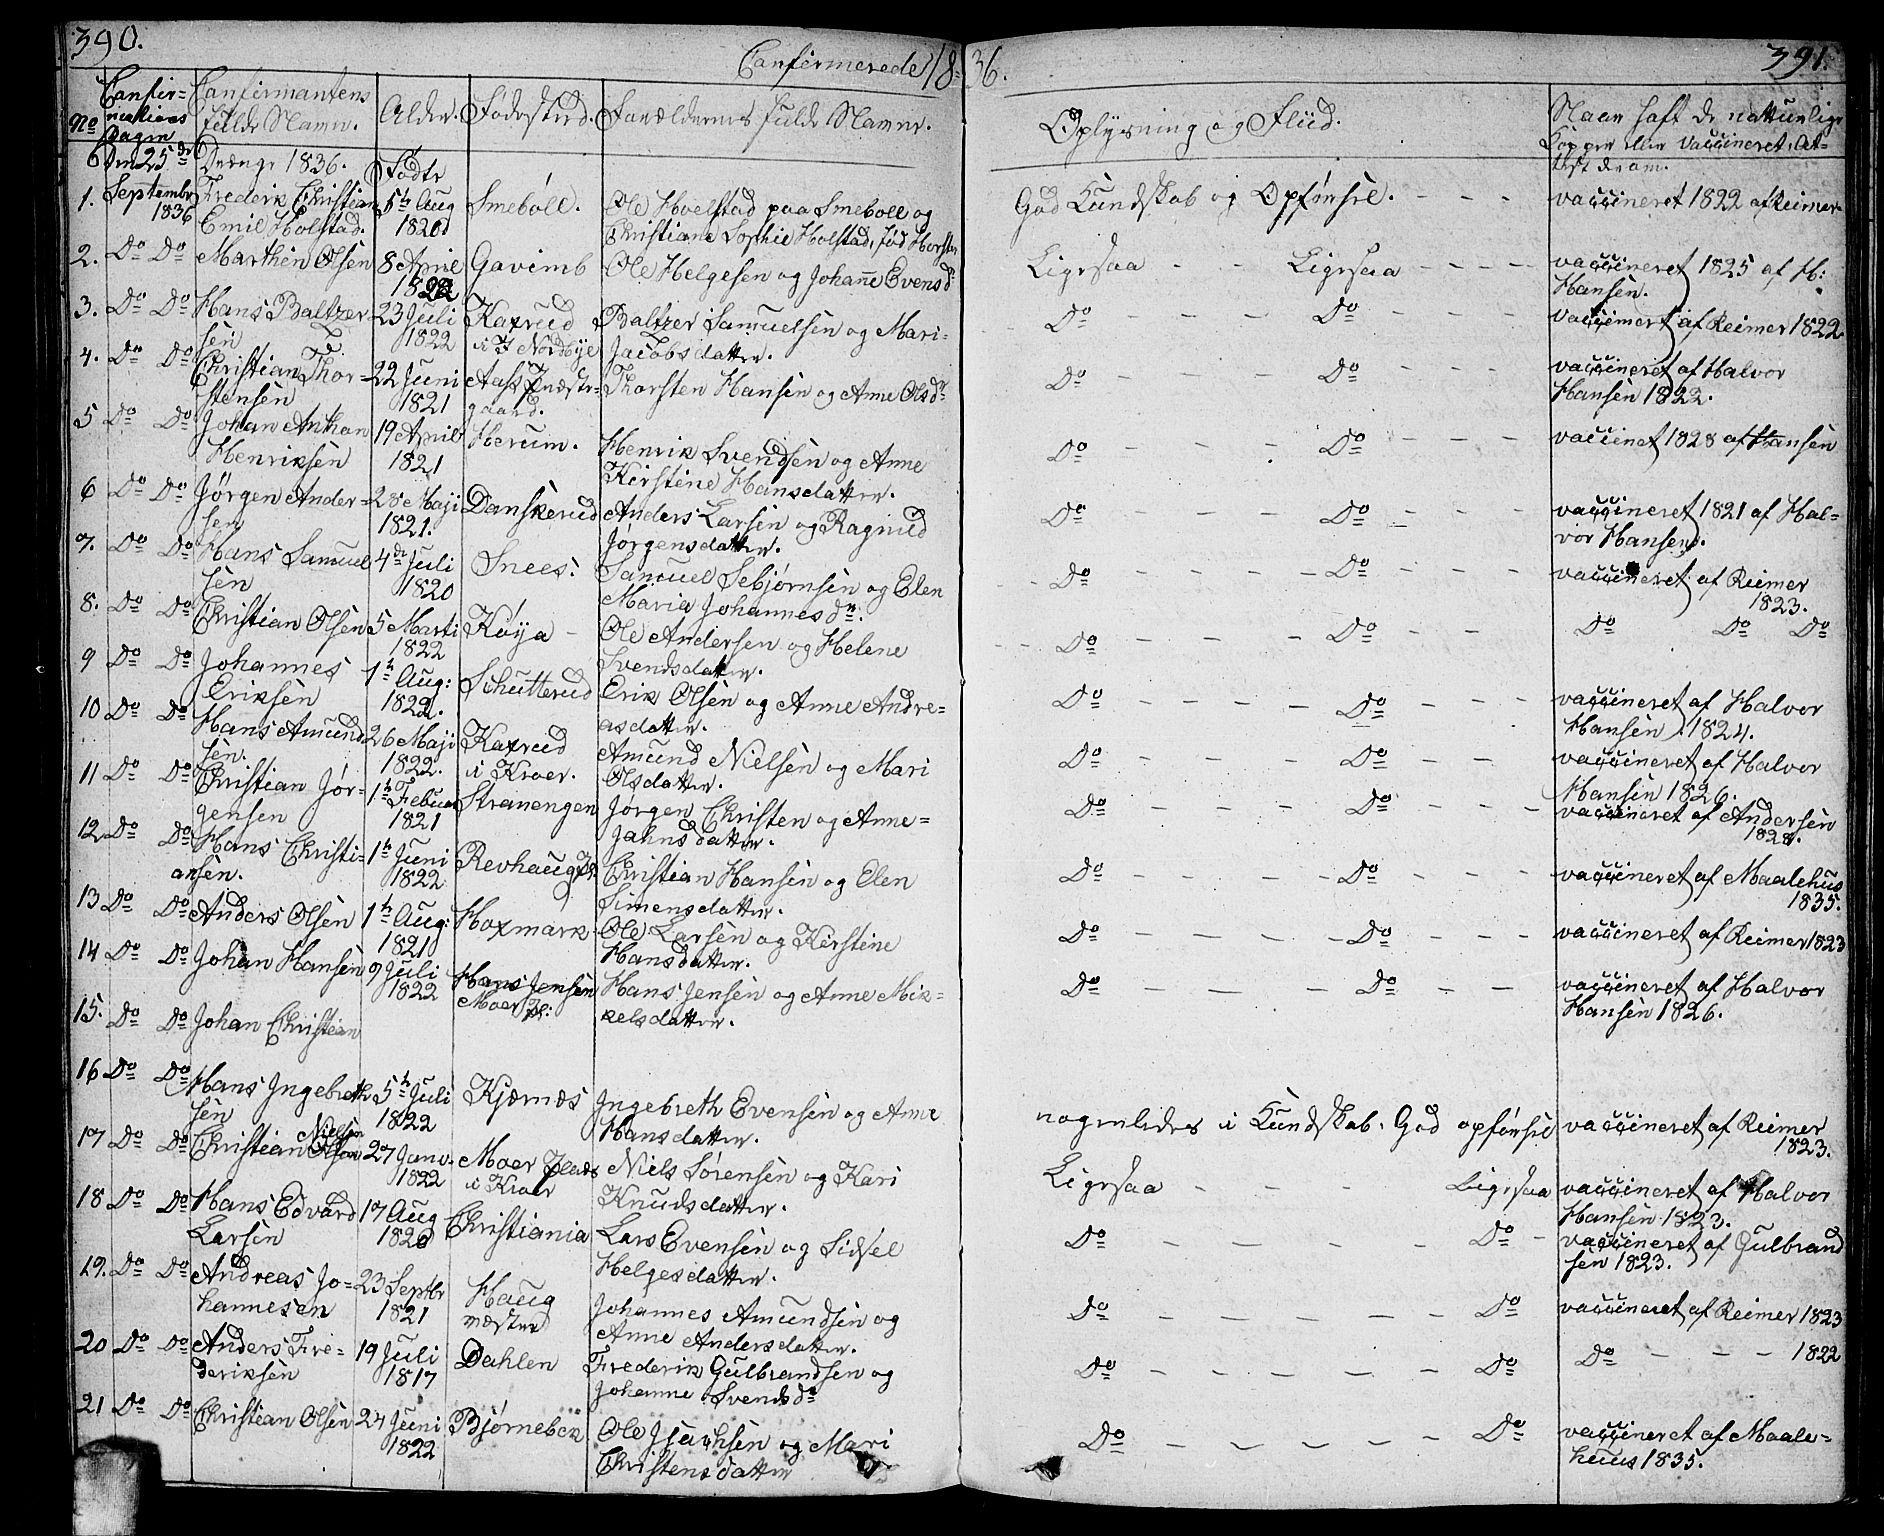 390.
Confirmerede 18
36.
391.
No
Confir-
mations
Dagen
Confirmantens
fulde Navn.
Alder.
Fødested.
Forældrenes fulde Navne.
Oplysning og Fliid.
Naar haft de naturlige
Kopper eller vaccineret, At-
test derom.
Den 25de Drenge 1836. Fødte
1. Septembr 1836 Frederik Christian 5te Aug Smeböll. Ole Hoelstad paa Smeboll og God Kundskab og Opførsel. - - - vaccineret 1822 af Reimer
Emil Holstad. 1820 Christiane Sophie Holstad, fød
2. Do Do Marthin Olsen 8 April Gavimb Ole Helgesen og Johanne Evensd. Ligesaa - - Ligesaa - - - - vaccineret 1825 af H:
1822 Hansen.
3. Do Do Hans Baltzer- 23 Juli Kaxrud Baltzer Samuelsen og Mari- Do - - - - Do - - - vaccinert af Reimer 1822
sen 1822 i Nordbye Jacobsdatter.
4. Do Do Christian Thor- 22 Juni Aas Præste- Thorsten Hansen og Anne Olsdr Do - - - - Do - - - vaccineret af Halvor
stensen 1821 gaard. Hansen 1822.
5 Do Do Johan Anthon 19 April Herum. Henrik Svendsen og Anne Do - - - Do - - - vaccinet 1828 af Hansen
Henriksen 1821 Kirstine Hansdatter.
6 Do Do Jørgen Ander- 28 Maji Danskerud Anders Larsen og Ragnild Do - - - - Do - - - vaccineret 1821 af Hal-
sen 1821. Jørgensdatter. vor Hansen.
7. Do Do Hans Samuel 4de Juli Snees. Samuel Sebjørnsen og Elen Do - - - - Do - - - vaccineret af Reimer
sen 1820 Maria Johannesdr. 1823.
8. Do Do Christian Olsen 5 Marti Köya - Ole Andersen og Helene Do - - - - Do - - - Do Do Do
1822 Svendsdatter.
9 Do Do Johannes 1te Aug: Schutterud Erik Olsen og Anne Andre- Do - - - - Do - - - vaccineret af Halvor
Eriksen 1822. asdatter. Hansen 1824.
10 Do Do Hans Amund 26 Maji Kaxrud Amund Nielsen og Mari Do - - - - Do - - - vaccineret af Halvor
sen. 1822. i Kroer. Olsdatter. Hansen 1826.
11 Do Do Christian Jør- 1te Febuar Stranengen Jørgen Christen og Anne- Do - - - - Do - - - vaccineret af Andersen
gensen 1821 Jahnsdatter. 1828.
12 Do Do Hans Christi- 1te Juni Revhaug Pl. Christian Hansen og Elen Do - - - - Do - - - vaccineret af Maalehus
ansen. 1822 Simensdatter. 1835.
13 Do Do Anders Olsen 1te Aug: Hoxmark Ole Larsen og Kirstine Do - - - - Do - - - vaccineret af Reimer 1823
1821 Hansdatter.
14 Do Do Johan Hansen 9 Juli Hans Jensen Hans Jensen og Anne Mik- Do - - - - Do - - - vaccineret af Halvor
1822 Moer Pl: kelsdatter. Hansen 1826.
15. Do Do Johan Christian
16 Do Do Hans Ingebreth 5te Juli Kjærnæs Ingebreth Evensen og Anne nogenledes i Kundskab. God opførsel vaccineret af Reimer
sen 1822 Hansdatter. 1823.
17 Do Do Christian Nielsen 27 Janv. Moer Plads Niels Sørensen og Kari Ligesaa - - - Ligesaa vaccineret af Halvor
1822 i Kroer Knudsdatter. Hansen 1823.
18 Do Do Hans Edvard 17 Aug Christiania Lars Evensen og Sidsel Do - - - - Do - vaccineret af Gulbrand
Larsen 1820 Helgesdatter. sen 1823.
19. Do Do Andreas Jo- 23 Septbr Haug Johannes Amundsen og Do - - - - Do vaccineret af Reimer 1823
hannesen 1821 væstre Anne Andersdatter.
20 Do Do Anders Fre- 19 Juli Dahlen Frederik Gulbrandsen og Do - - - - Do Do - - - 1822
deriksen 1817 Johanne Svendsdr
21 Do Do Christian Olsen 24 Juni Bjørnebek Ole Isachsen og Mari Do - - - - Do vaccineret af Maale-
1822 Christensdatter huus 1835.